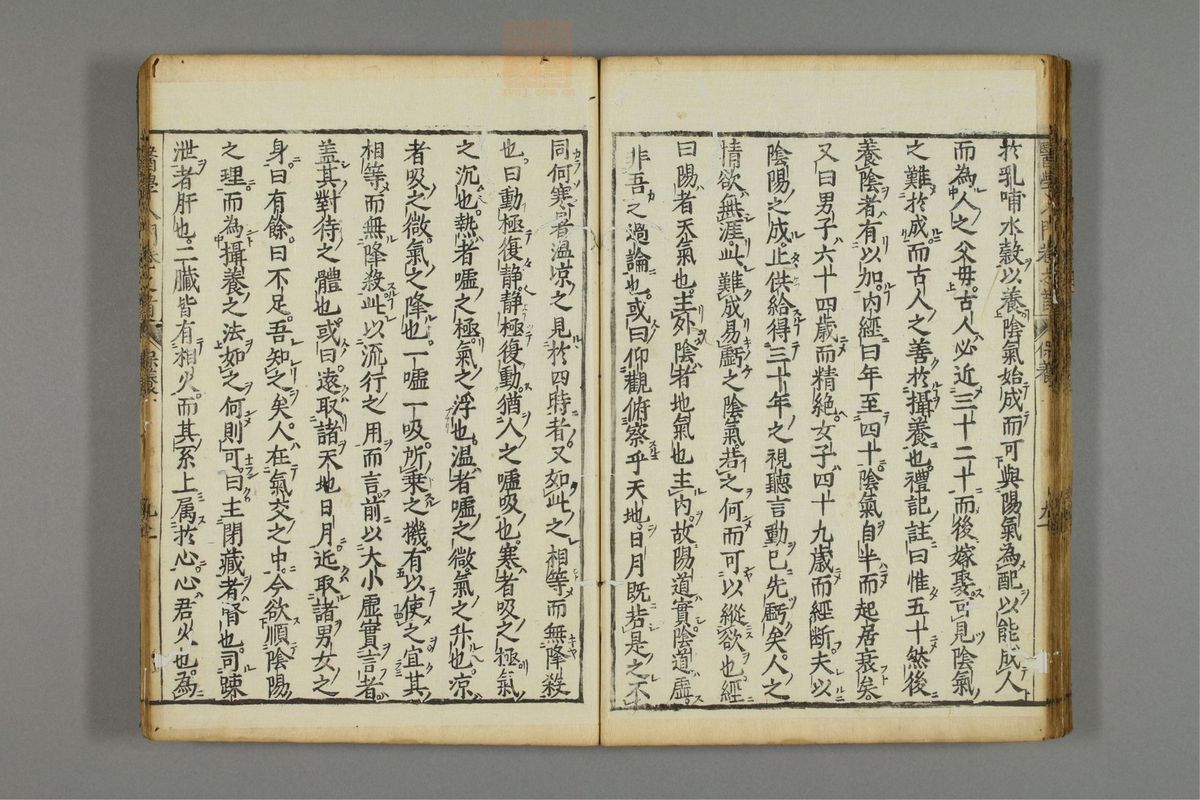 於乳哺水穀以養陰氣始成而可與陽氣為配以能成人
而為人之父母古人必近三十二十而後嫁娶可見陰氣
之難於成而古人之善於攝養也禮記註曰惟五十然後
養陰者有以加內經曰年至四十陰氣自半而起居衰矣
又曰男子六十四歲而精絶女子四十九歲而經断夫以
陰陽之成止供給得三十年之視聽言動已先虧矣人之
情欲無涯此難成易虧之陰氣若之何而可以縱欲也經
曰陽者天氣也主外陰者地氣也主內故陽道實陰道虛
非吾之過論也或曰仰觀俯察乎天地日月既若是之不
同何寒暑温凉之見於四時者又如此之相等而無降殺
也曰動極復静静極復動猶人之嘘吸也寒者吸之極氣
之沉也熱者嘘之極氣之浮也温者嘘之微氣之升也凉
者吸之微氣之降也一嘘一吸所乘之機有以使之宜其
相等而無降殺此以流行之用而言前以大小虛實言者
盖其對待之體也或曰遠取諸天地日月近取諸男女之
身曰有餘曰不足吾知之矣人在氣交之中今欲順陰陽
之理而為攝養之法如之何則可曰主閉藏者腎也司踈
泄者肝也二臓皆有相火而其系上属於心心君火也為
醫學入門
保養